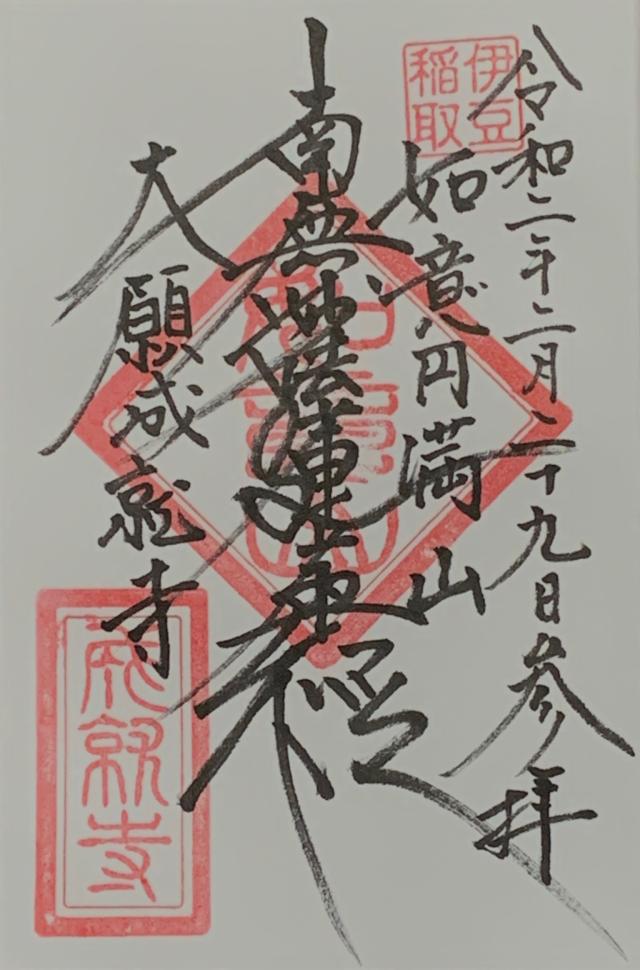 令和二年二月二十九日参拝
伊豆
稲取
如意円満山
南無妙法蓮華経
大願成就寺
成就寺